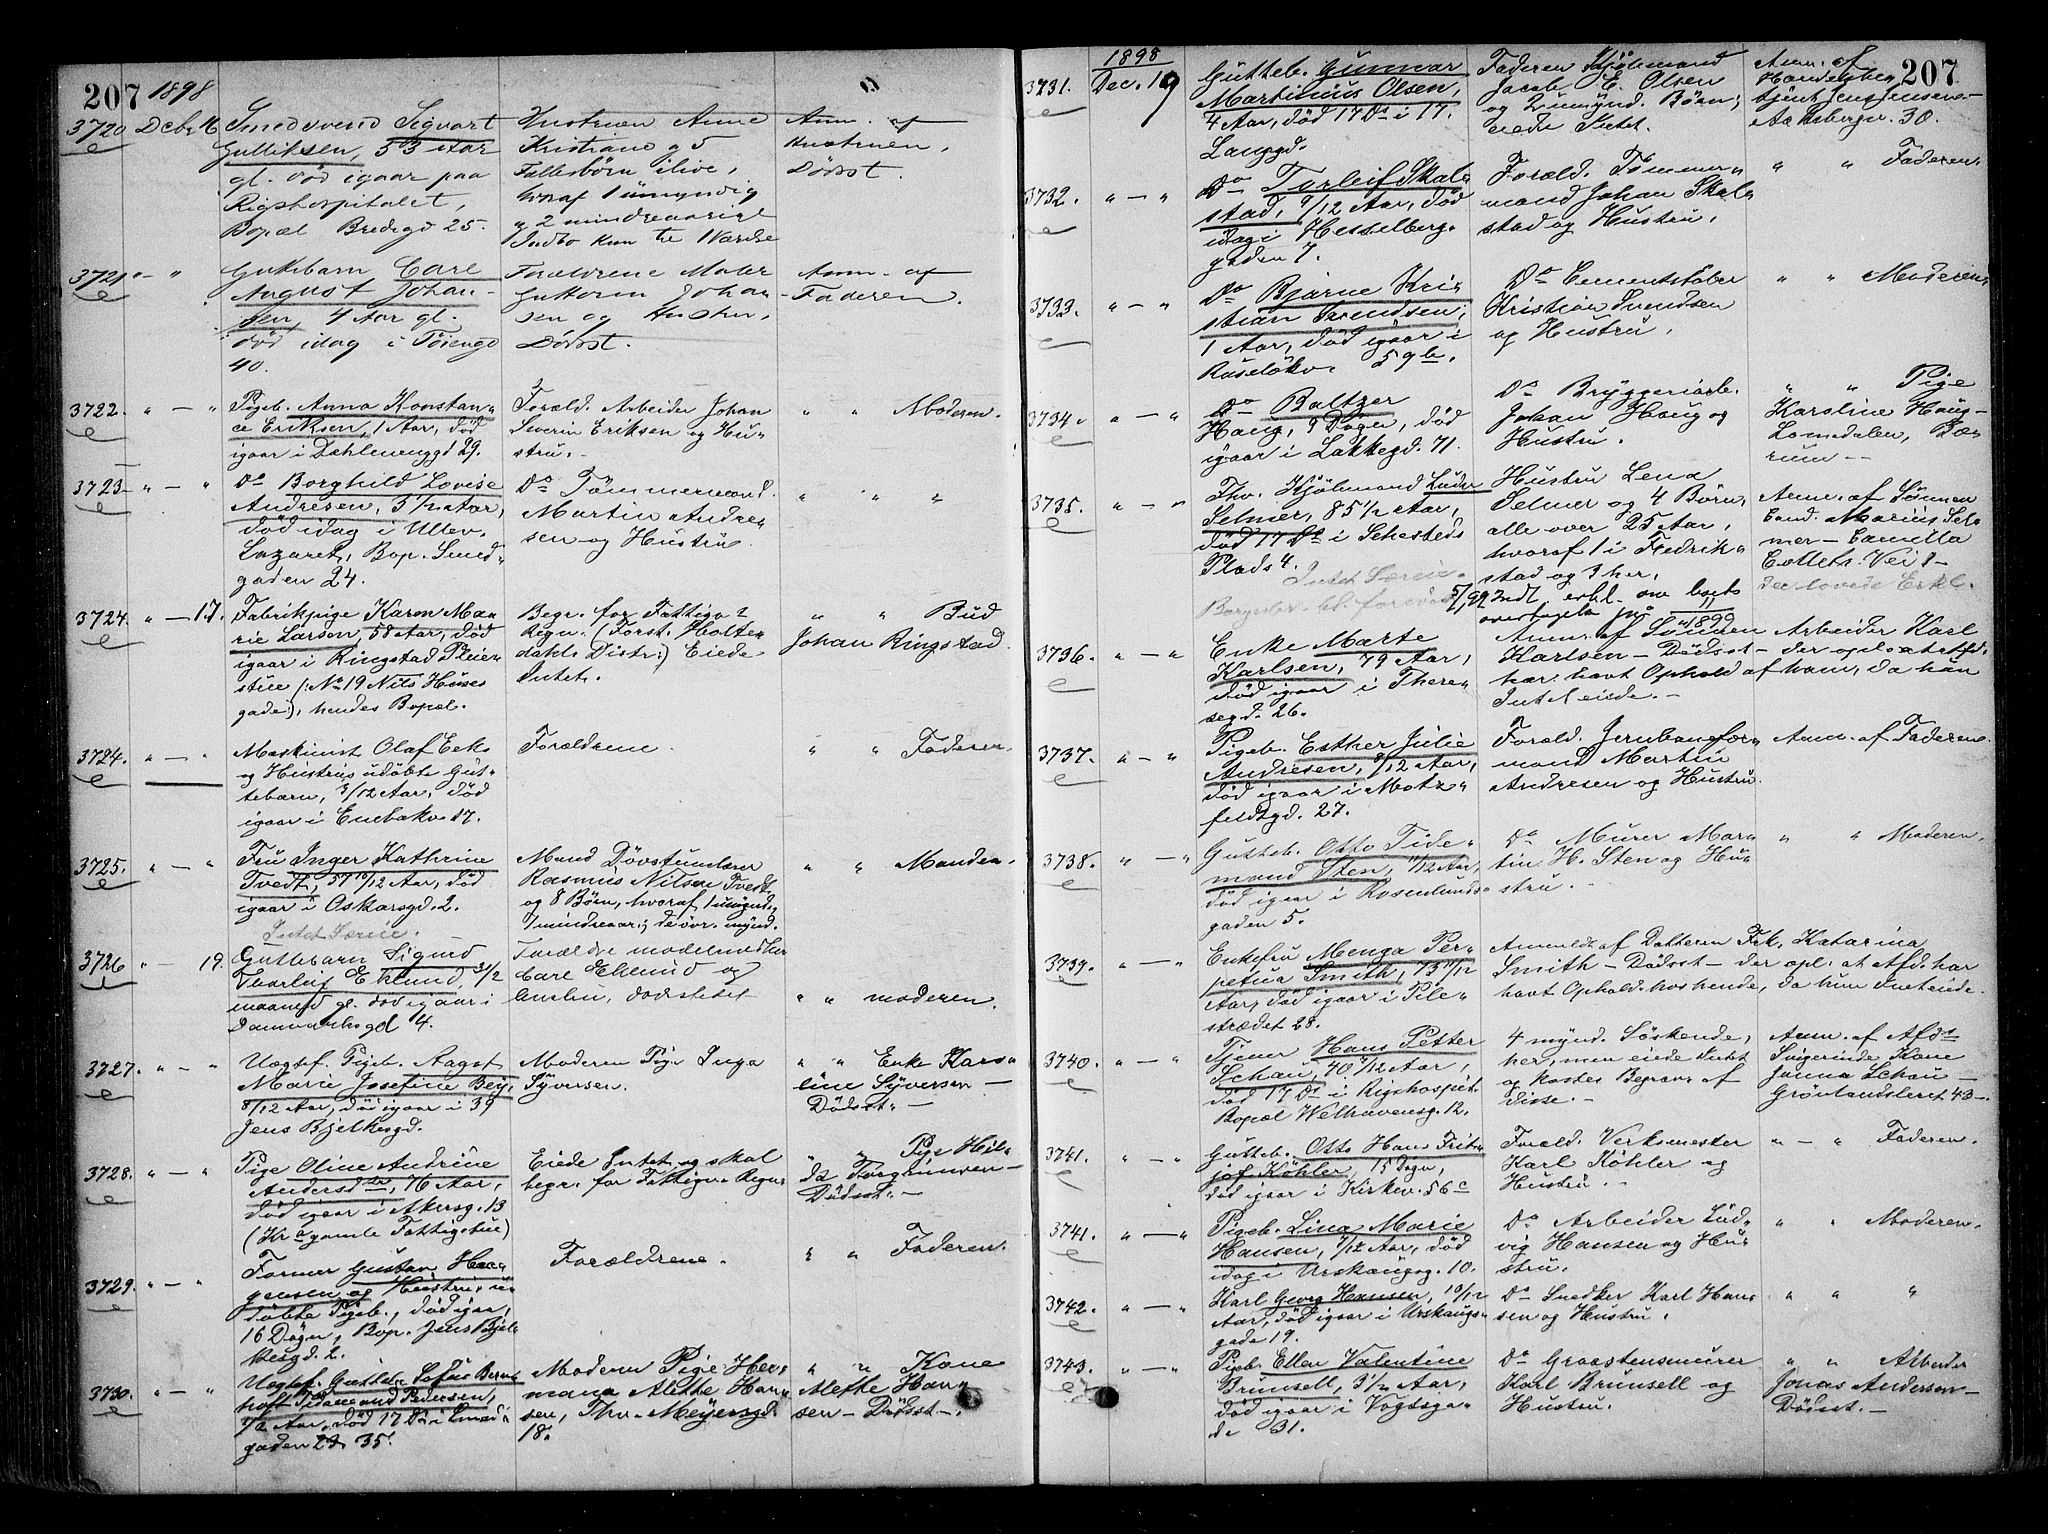 207 1898
3720 Dcbr 16 Smedsvend Sigvart
Gulliksen, 53 Aar
gl. død igaar paa
Rigshospitalet,
Bopæl Bredegd 25.
Hustruen Anne
Kristiane og 5
Fællesbörn ilive,
hvoraf 1 umyndig
og 2 mindreaarige
Indbo kun til 1 Værelse
Anm. af
Hustruen,
Dødsst.
3721 " — " Guttebarn Carl
August Johan-
sen 4 Aar gl.
død idag i Töiengd
40.
Forældrene Maler
Guttorm Johan-
sen og Hustru,
Dødsst.
Anm. af
Faderen.
3722. " — " Pigeb. Anna Konstan-
ce Eriksen, 1 Aar, død
igaar i Dahlenenggd 29.
Foræld. Arbeider Johan
Severin Eriksen og Hu-
stru.
" " Moderen.
3723 " — " Do Borghild Lovise
Andresen, 3 1/12 Aar,
død idag i Ullev.
Lazaret, Bop. Smed-
gaden 24.
Do Tømmermand
Martin Andre-
sen og Hustru.
" " "
3724. " — 17. Fabrikpige Karen Ma-
rie Larsen, 58 Aar, død
igaar i Ringstad Pleien-
stue (: No 19 Nils Huses
gade:), hendes Bopæl.
Begr. for Fattigv:
Regn. (Forst. Holte-
dahls Distr:) Eiede
Intet.
" " Bud
Johan Ringstad.
3724. " — " Maskinist Olaf Eeks
og Hustrus udøbte Gut-
tebarn, /12 Aar, død
igaar i Enebakv. 17.
Forældrene.
" " Faderen.
3725. " — " Fru Inger Kathrine
Tvedt, 37 10/12 Aar, død
igaar i Oskarsgd. 2.
Intet Særeie.
Mand Døvstumlærer
Rasmus Nilsen Tvedt
og 8 Börn, hvoraf 1 umynd.,
7 mindreaar.; de övr. mynd.
" " Manden.
3726 " — 19. Guttebarn Sigurd
Thorleif Eklund, 3 1/2
maaned gl. død igaar i
Danmarksgd 4.
Forældre modelsnedker
Carl Eklund og
hustru, dødsstedet
" " moderen.
3727. " — " Uægtef. Pigeb. Aagot
Marie Josefine Bey,
8/12 Aar, død igaar i 39
Jens Bjelkesgd.
Moderen Pige Inga
Syversen.
" " Enke Karo-
line Syversen —
Dödsst. —
3728. " — " Pige Oline Andrine
Andersdtr, 76 Aar,
død igaar i Akersg. 13
(Kra gamle Fattigstue)
Eiede Intet og skal
begr. for Fattigv. Regn.
" " Pige Hil-
da Torgrimsen —
Dødsst. —
3729. " — " Former Gustav Haa-
gensen og Hustrus u-
døbte Pigeb., død igaar,
16 Døgn, Bop. Jens Bjel-
kesgd. 2.
Forældrene.
" " Faderen.
3730. " — " Uægtef. Gutteb. Sofus Bern-
hoft Tidemand Pedersen,
1/12 Aar, død 17 Ds. i Smed-
gaden 35.
Moderen Pige Her-
mana Alette Han-
sen, Thv. Meyersgd.
18.
" " Kone
Alette Han-
sen — Dødsst —.
1898 207
3731. Dec. 19 Gutteb. Gunnar
Martinius Olsen,
4 Aar, død 17 Ds i 17.
Langgd.
Faderen Kjølmand
Jacob E. Olsen
og 2 umynd. Børn;
eiede Intet.
Anm. af
Handelsbe-
tjent Jens Jensen —
Aakebergv. 30.
3732. " — " Do Torleif Skal-
stad, 9/12 Aar, død
idag i Hesselberg-
gaden 7.
Foræld. Tömmer-
mand Johan Skal-
stad og Hustru.
" " Faderen.
3733. " — " Do Bjarne Kri-
stian Svendsen,
1 Aar, død igaar i
Ruselökv. 59 b.
Do Cementstöber
Kristian Svendsen
og Hustru.
" " Moderen.
3734. " — " Do Baltzer
Haug, 9 Døgn, død
igaar i Lakkegd. 71.
Do Bryggeriarb.
Johan Haug og
Hustru.
" " Pige
Karoline Haug —
Lomedalen, Bæ-
rum —
3735. " — " Fhv. Kjölmand Luder
Selmer, 85 1/2 Aar,
død 17 Ds i Sehesteds
Plads 4.
Intet Særeie.
Hustru Lena
Selmer og 4 Börn,
alle over 25 Aar,
hvoraf 1 i Fredrik-
stad og 3 her.
Anm. af Sönnen
Cand. Marius Sel-
mer — Camilla
Colletts Vei 1 —
der lovede Erkl.
5/1 99 Indl. erkl. om boets
overtagelse
3736. " — " Enke Marte
Karlsen, 79 Aar,
død igaar i There-
segd. 26.
Anm. af Sönnen Arbeider Karl
Karlsen — Dødsst — der opl. at Afd.
har havt Ophold af ham, da hun
Intet eiede. —
3737. " — " Pigeb. Esther Julie
Andresen, 8/12 Aar,
død igaar i Motz-
feldtsgd. 27.
Foræld. Jernbanefor-
mand Martin
Andresen og Hustru.
Anm. af Faderen.
3738. " — " Gutteb. Otto Tide-
mand Sten, 11/12 Aar,
død igaar i Rosenlunds-
gaden 5.
Do Murer Mar-
tin H. Sten og Hu-
stru. —
" " Moderen.
3739. " — " Enkefru Menga Per-
petua Smith, 73 11/12
Aar, død igaar i Pile-
strædet 28.
Anmeldt af Datteren Frk. Katarina
Smith — Dödsst — der opl. at Afd. har
havt Ophold hos hende, da hun Intet eiede.
3740. " — " Tjener Hans Petter
Schau, 40 /12 Aar,
død 17 Ds i Rigshospit.
Bopæl Welhavensg. 12.
4 mynd. Söskende,
her, men eiede Intet
og kostes Begrav. af
disse. —
Anm. af Afds
Svigerinde Kone
Janna Schau —
Grönlandsleret 43 —
3741. " — " Gutteb. Otto Hans Frit-
jof Köhler, 15 Døgn,
død igaar i Kirkev. 56 c
Foræld. Verksmester
Karl Köhler og
Hustru. —
" — " Faderen.
3741. " — " Pigeb. Lina Marie
Hansen, 7/12 Aar, død
idag i Urskougsg. 10.
Do Arbeider Lud-
vig Hansen og Hu-
stru.
" " Moderen.
3742. " — " Karl Georg Hansen, 10/12
Aar, død igaar i Urskougs-
gade 19.
Do Snedker Karl Han-
sen og Hustru.
" " "
3743. " — " Pigeb. Ellen Valentine
Brunsell, 3 1/12 Aar,
død igaar i Vogtsga-
de 31.
Do Graastensmurer
Karl Brunsell og
Hustru.
" " Arbeider
Jonas Anderson —
Dødsst. —